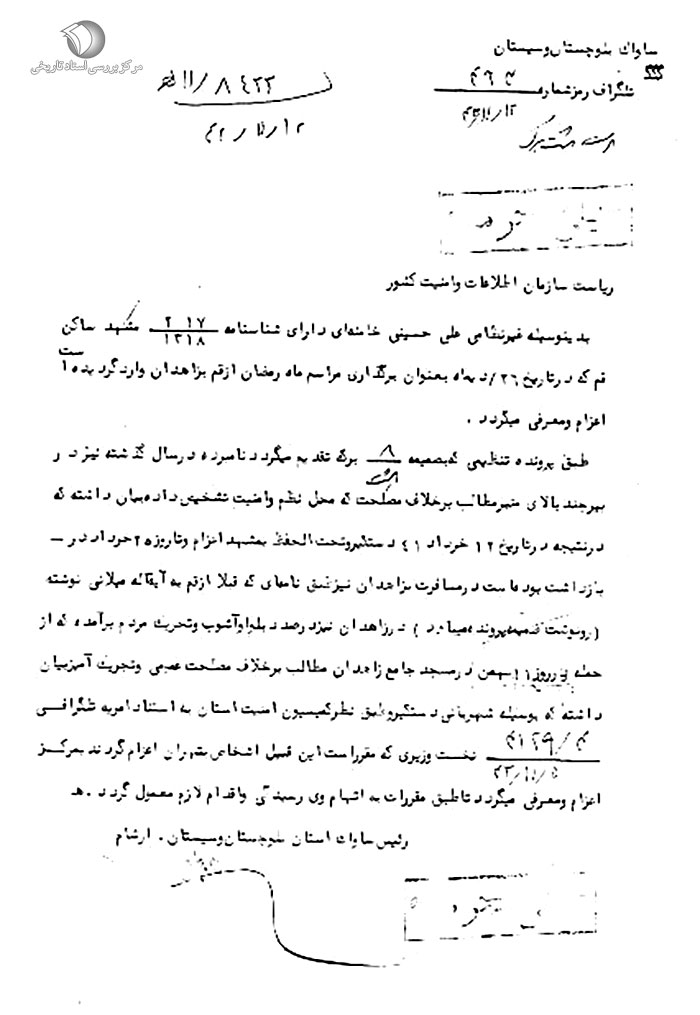 مرکز بررسی اسناد تاریخی
ساواك بلوچستان وسیستان
تلگراف رمز شماره ۴۶۳
۴۲/۱۱/۱۲
۸۴۲۳ / ۱۱
۴۲/۱۱/۱۲
ریاست سازمان اطلاعات وامنیت کشور
بدینوسیله غیرنظامی علی حسینی خامنه‌ای دارای شناسنامه ۲۱۷/۱۳۱۸ مشهد ساکن
قم که درتاریخ ۲۶/دیماه بعنوان برگذاری مراسم ماه رمضان ازقم بزاهدان واردگردیده است
اعزام ومعرفی میگردد .
طبق پرونده تنظیمی که بضمیمه ۸ هشت برگ تقدیم میگردد نامبرده درسال گذشته نیز در
بیرجند بالای منبر مطالب برخلاف مصلحت که مخل نظم وامنیت تشخیص داده بیان داشته که
درنتیجه درتاریخ ۱۲ خرداد ۴۱ دستگیروتحت الحفظ بمشهد اعزام وتاروز ۲۵ خرداد در –
بازداشت بوده است درمسافرت بزاهدان نیزطبق نامه‌ای که قبلا ازقم به آیة‌اله میلانی نوشته
(رونوشت ضمیمه پرونده میباشد ) درزاهدان نیز درصدد بلوا وآشوب وتحریك مردم برآمده که از
جمله در روز ۱۱ بهمن درمسجد جامع زاهدان مطالب برخلاف مصلحت عمومی وتحریك آمیز بیان
داشته که بوسیله شهربانی دستگیروطبق نظرکمیسیون امنیت استان به استناد امریه تلگرافی
۴۱۲۹/م ۴۲/۱۱/۵ نخست وزیری که مقرراست این قبیل اشخاص بتهران اعزام گردند بمرکز
اعزام ومعرفی میگردد تاطبق مقررات به اتهام وی رسیدگی واقدام لازم معمول گردد .ه
رئیس ساواك استان بلوچستان وسیستان . ارشام